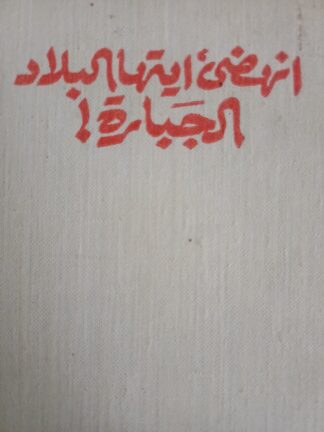 انهضئ ايتها البلاد
الجَبارة !